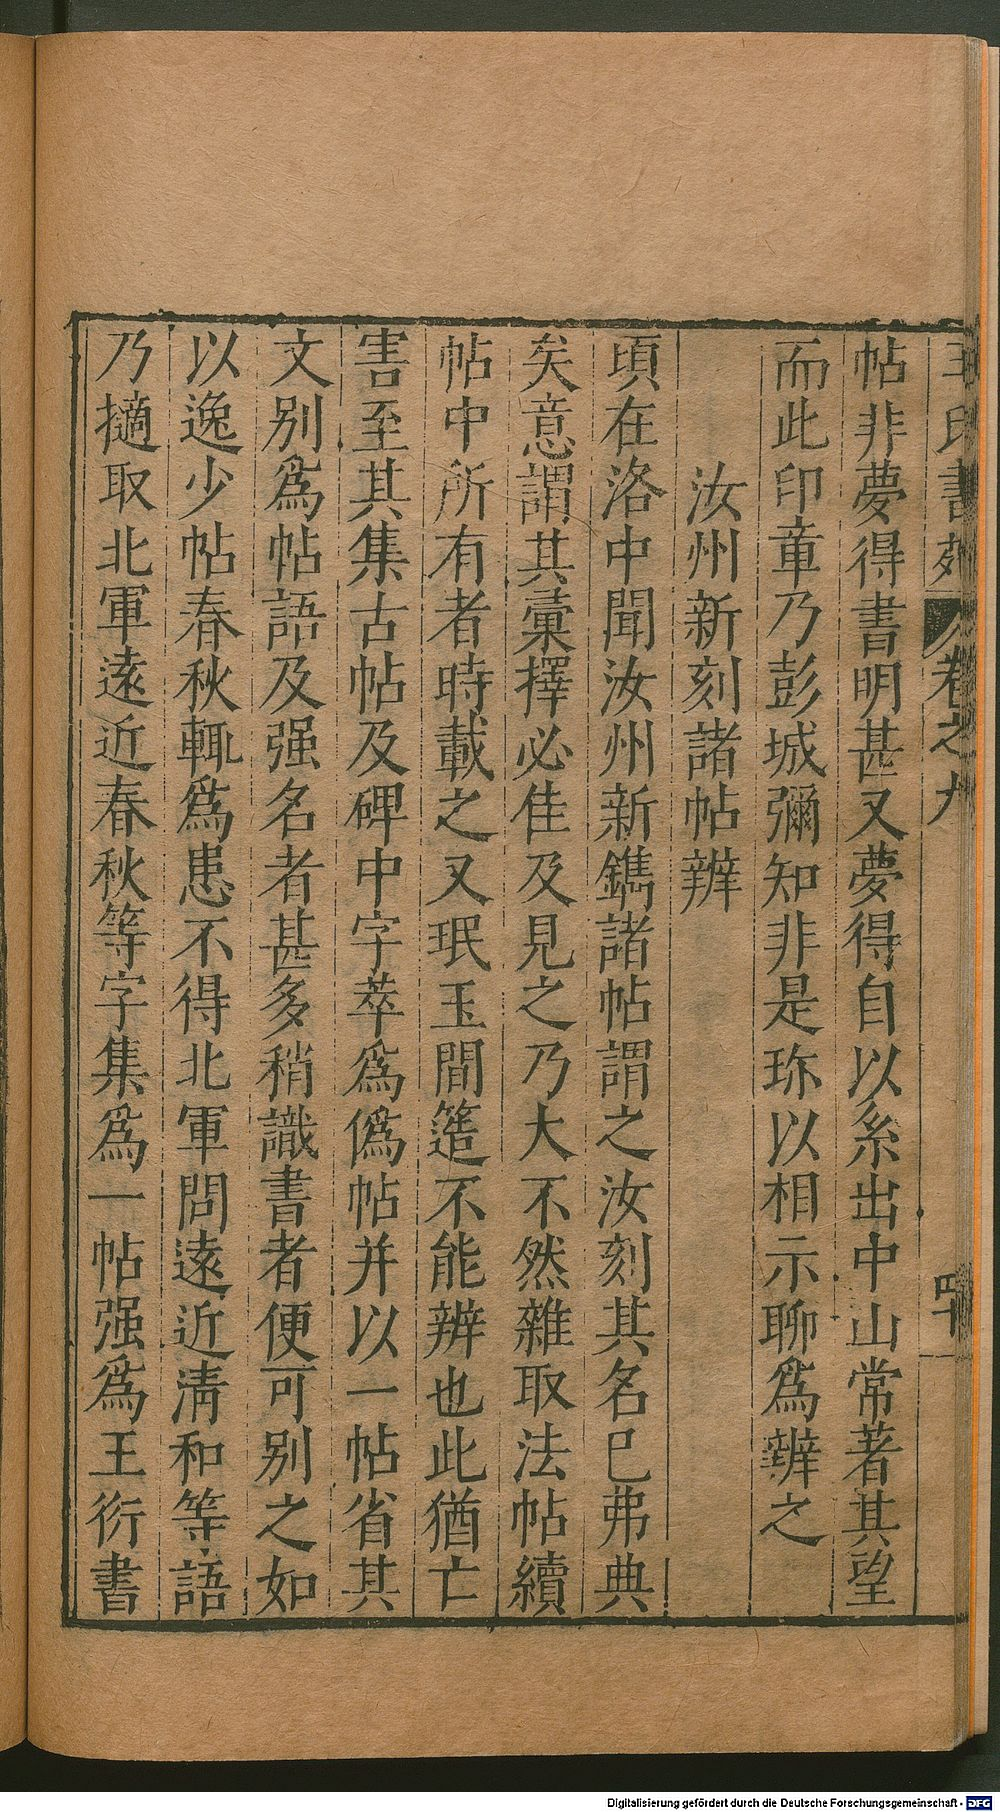 王氏書苑 卷之九 四十
帖非夢得書明甚又夢得自以系出中山常著其望
而此印章乃彭城彌知非是珎以相示聊爲辨之
汝州新刻諸帖辨
頃在洛中聞汝州新鐫諸帖謂之汝刻其名巳弗典
矣意謂其彙擇必佳及見之乃大不然雜取法帖續
帖中所有者時載之又珉玉間簉不能辨也此猶亡
害至其集古帖及碑中字萃爲僞帖并以一帖省其
文别爲帖語及强名者甚多稍識書者便可别之如
以逸少帖春秋輒爲患不得北軍問遠近清和等語
乃擿取北軍遠近春秋等字集爲一帖强爲王衍書
Digitalisierung gefördert durch die Deutsche Forschungsgemeinschaft - DFG